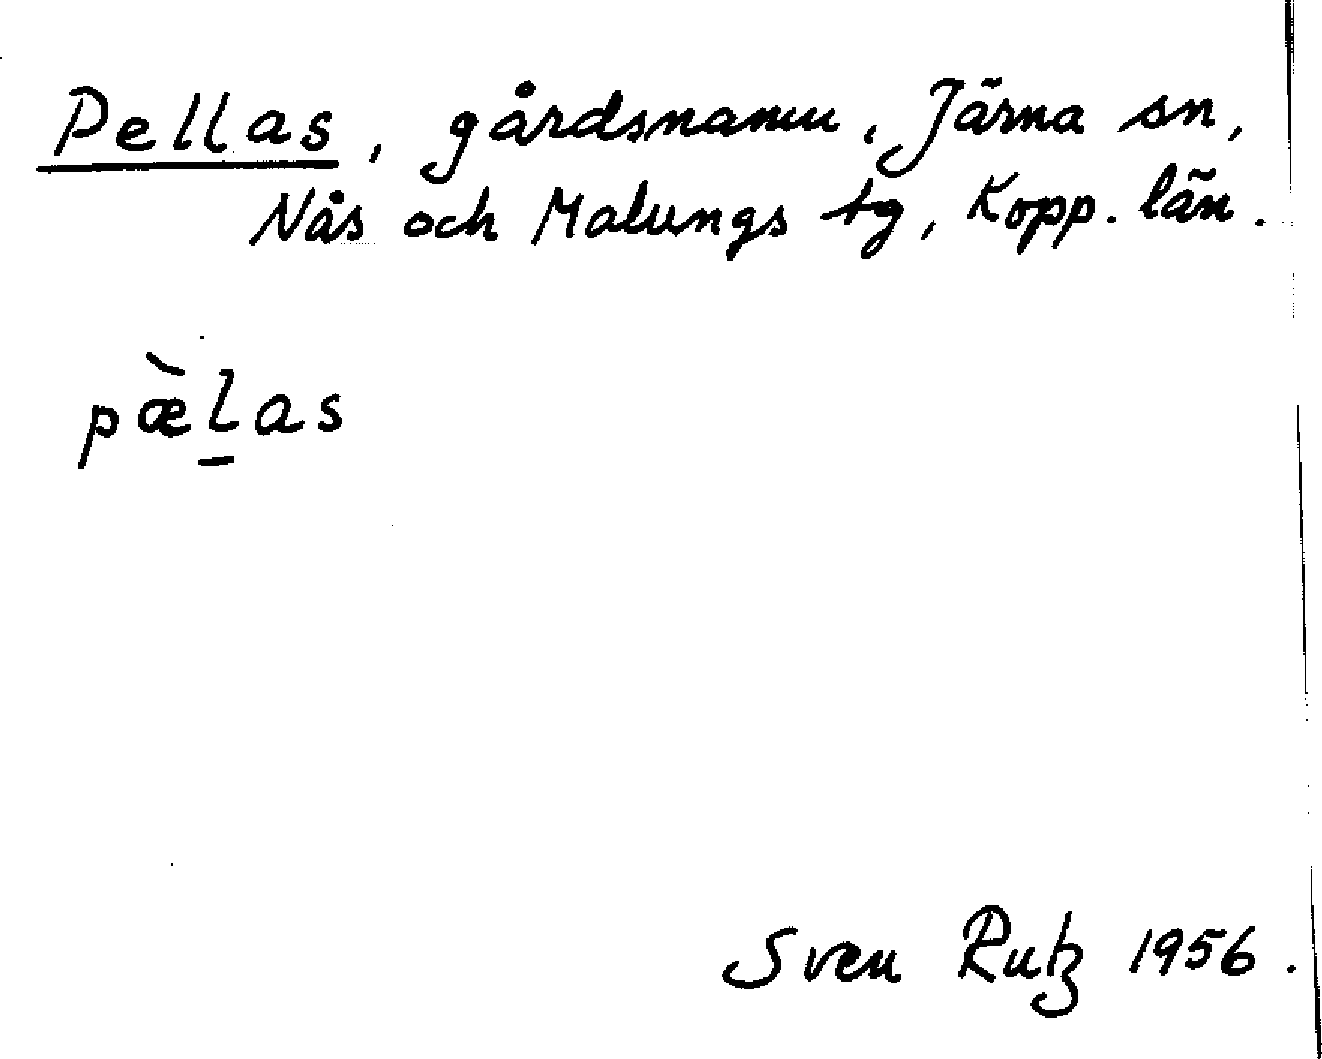 Pellas, gårdsnamn, Järna sn,
Nås och Malungs tg, Kopp. län.
pæ̀l̠as
Sven Rutz 1956.